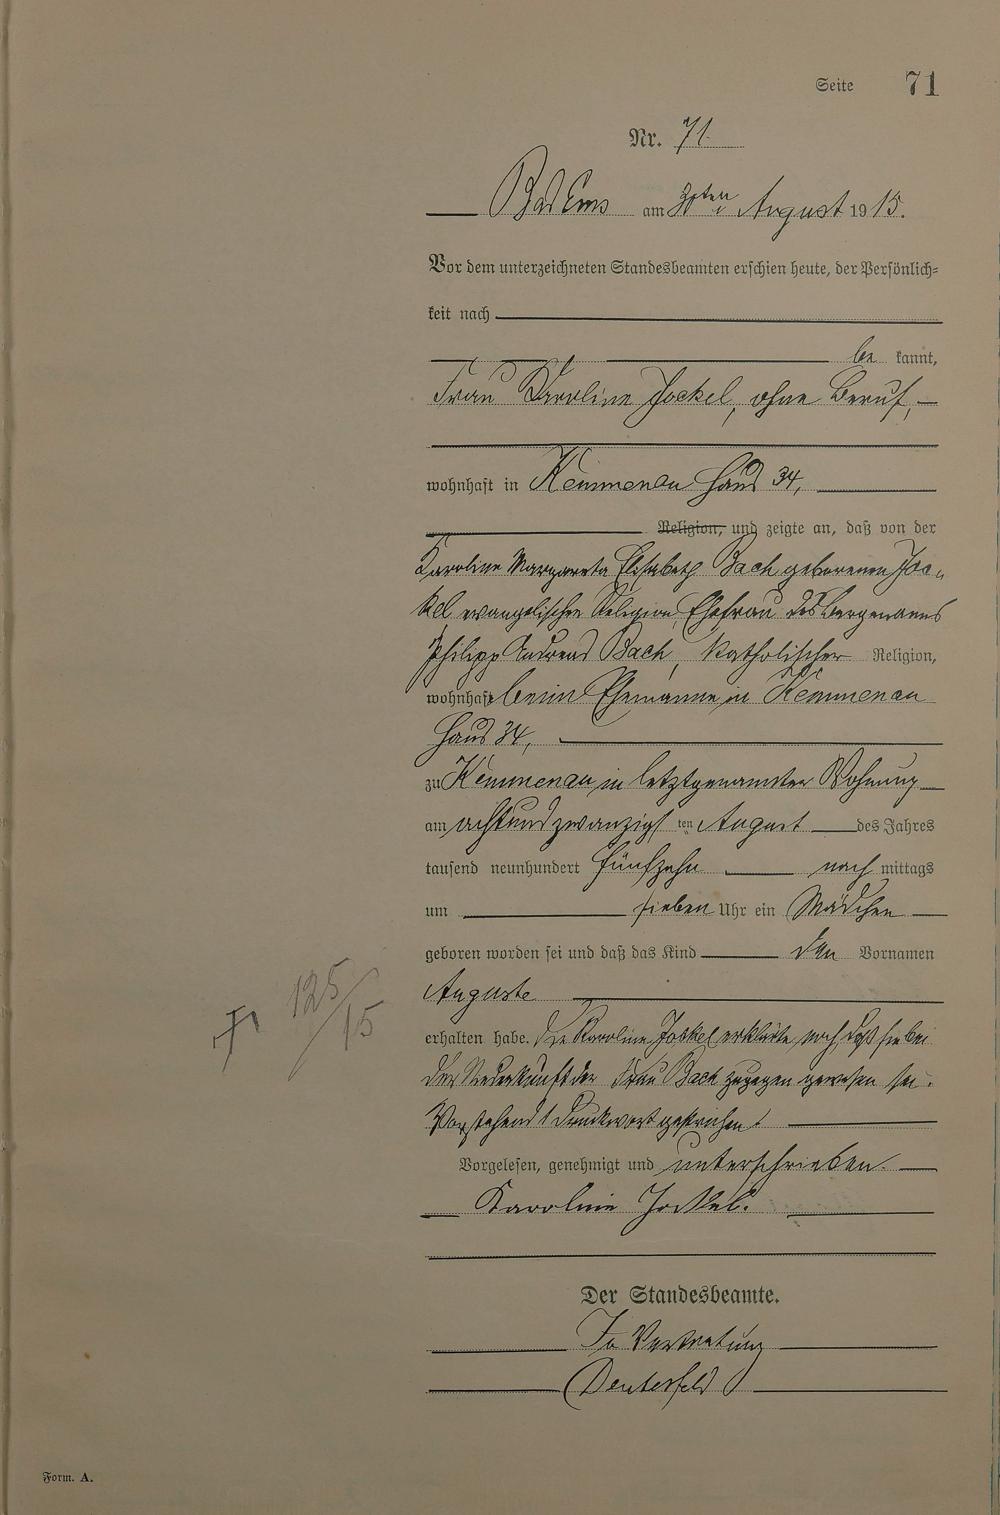 Seite 71
Nr. 71
Bad Ems am ten August 1915.
Vor dem unterzeichneten Standesbeamten erschien heute, der Persönlich=
keit nach
be kannt,
Frau Karoline Jockel, ohne Beruf,
wohnhaft in Kemmenau Haus 34,
Religion, und zeigte an, daß von der
Karoline Margareta Elisabeth Bach geborenen Joc=
kel evangelischer Religion, Ehefrau des Bergmanns
Philipp Andreas Bach, katholischer Religion,
wohnhaft beim Ehemanne in Kemmenau
Haus 34,
zu Kemmenau in letztgenannter Wohnung
am achtundzwanzigs ten August des Jahres
tausend neunhundert fünfzehn nach mittags
um sieben Uhr ein Mädchen
geboren worden sei und daß das Kind den Vornamen
Auguste
125/15
erhalten habe. Die Karoline Jockel erklärte noch, daß sie bei
der Niederkunft der Frau Bach zugegen gewesen sei.
Vorstehend 1 Druckwort gestrichen!
Vorgelesen, genehmigt und unterschrieben.
Karoline Jockel.
Der Standesbeamte.
In Vertretung
Form. A.